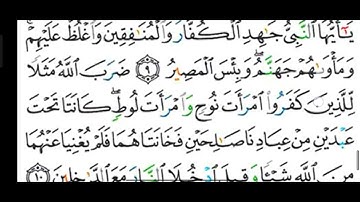 يَٰٓأَيُّهَا ٱلنَّبِيُّ جَٰهِدِ ٱلْكُفَّارَ وَٱلْمُنَٰفِقِينَ وَٱغْلُظْ عَلَيْهِمْ
وَمَأْوَىٰهُمْ جَهَنَّمُ ۖ وَبِئْسَ ٱلْمَصِيرُ ٩ ضَرَبَ ٱللَّهُ مَثَلًا
لِّلَّذِينَ كَفَرُوا۟ ٱمْرَأَتَ نُوحٍ وَٱمْرَأَتَ لُوطٍ ۖ كَانَتَا تَحْتَ
عَبْدَيْنِ مِنْ عِبَادِنَا صَٰلِحَيْنِ فَخَانَتَاهُمَا فَلَمْ يُغْنِيَا عَنْهُمَا
مِنَ ٱللَّهِ شَيْـًٔا وَقِيلَ ٱدْخُلَا ٱلنَّارَ مَعَ ٱلدَّٰخِلِينَ ١٠